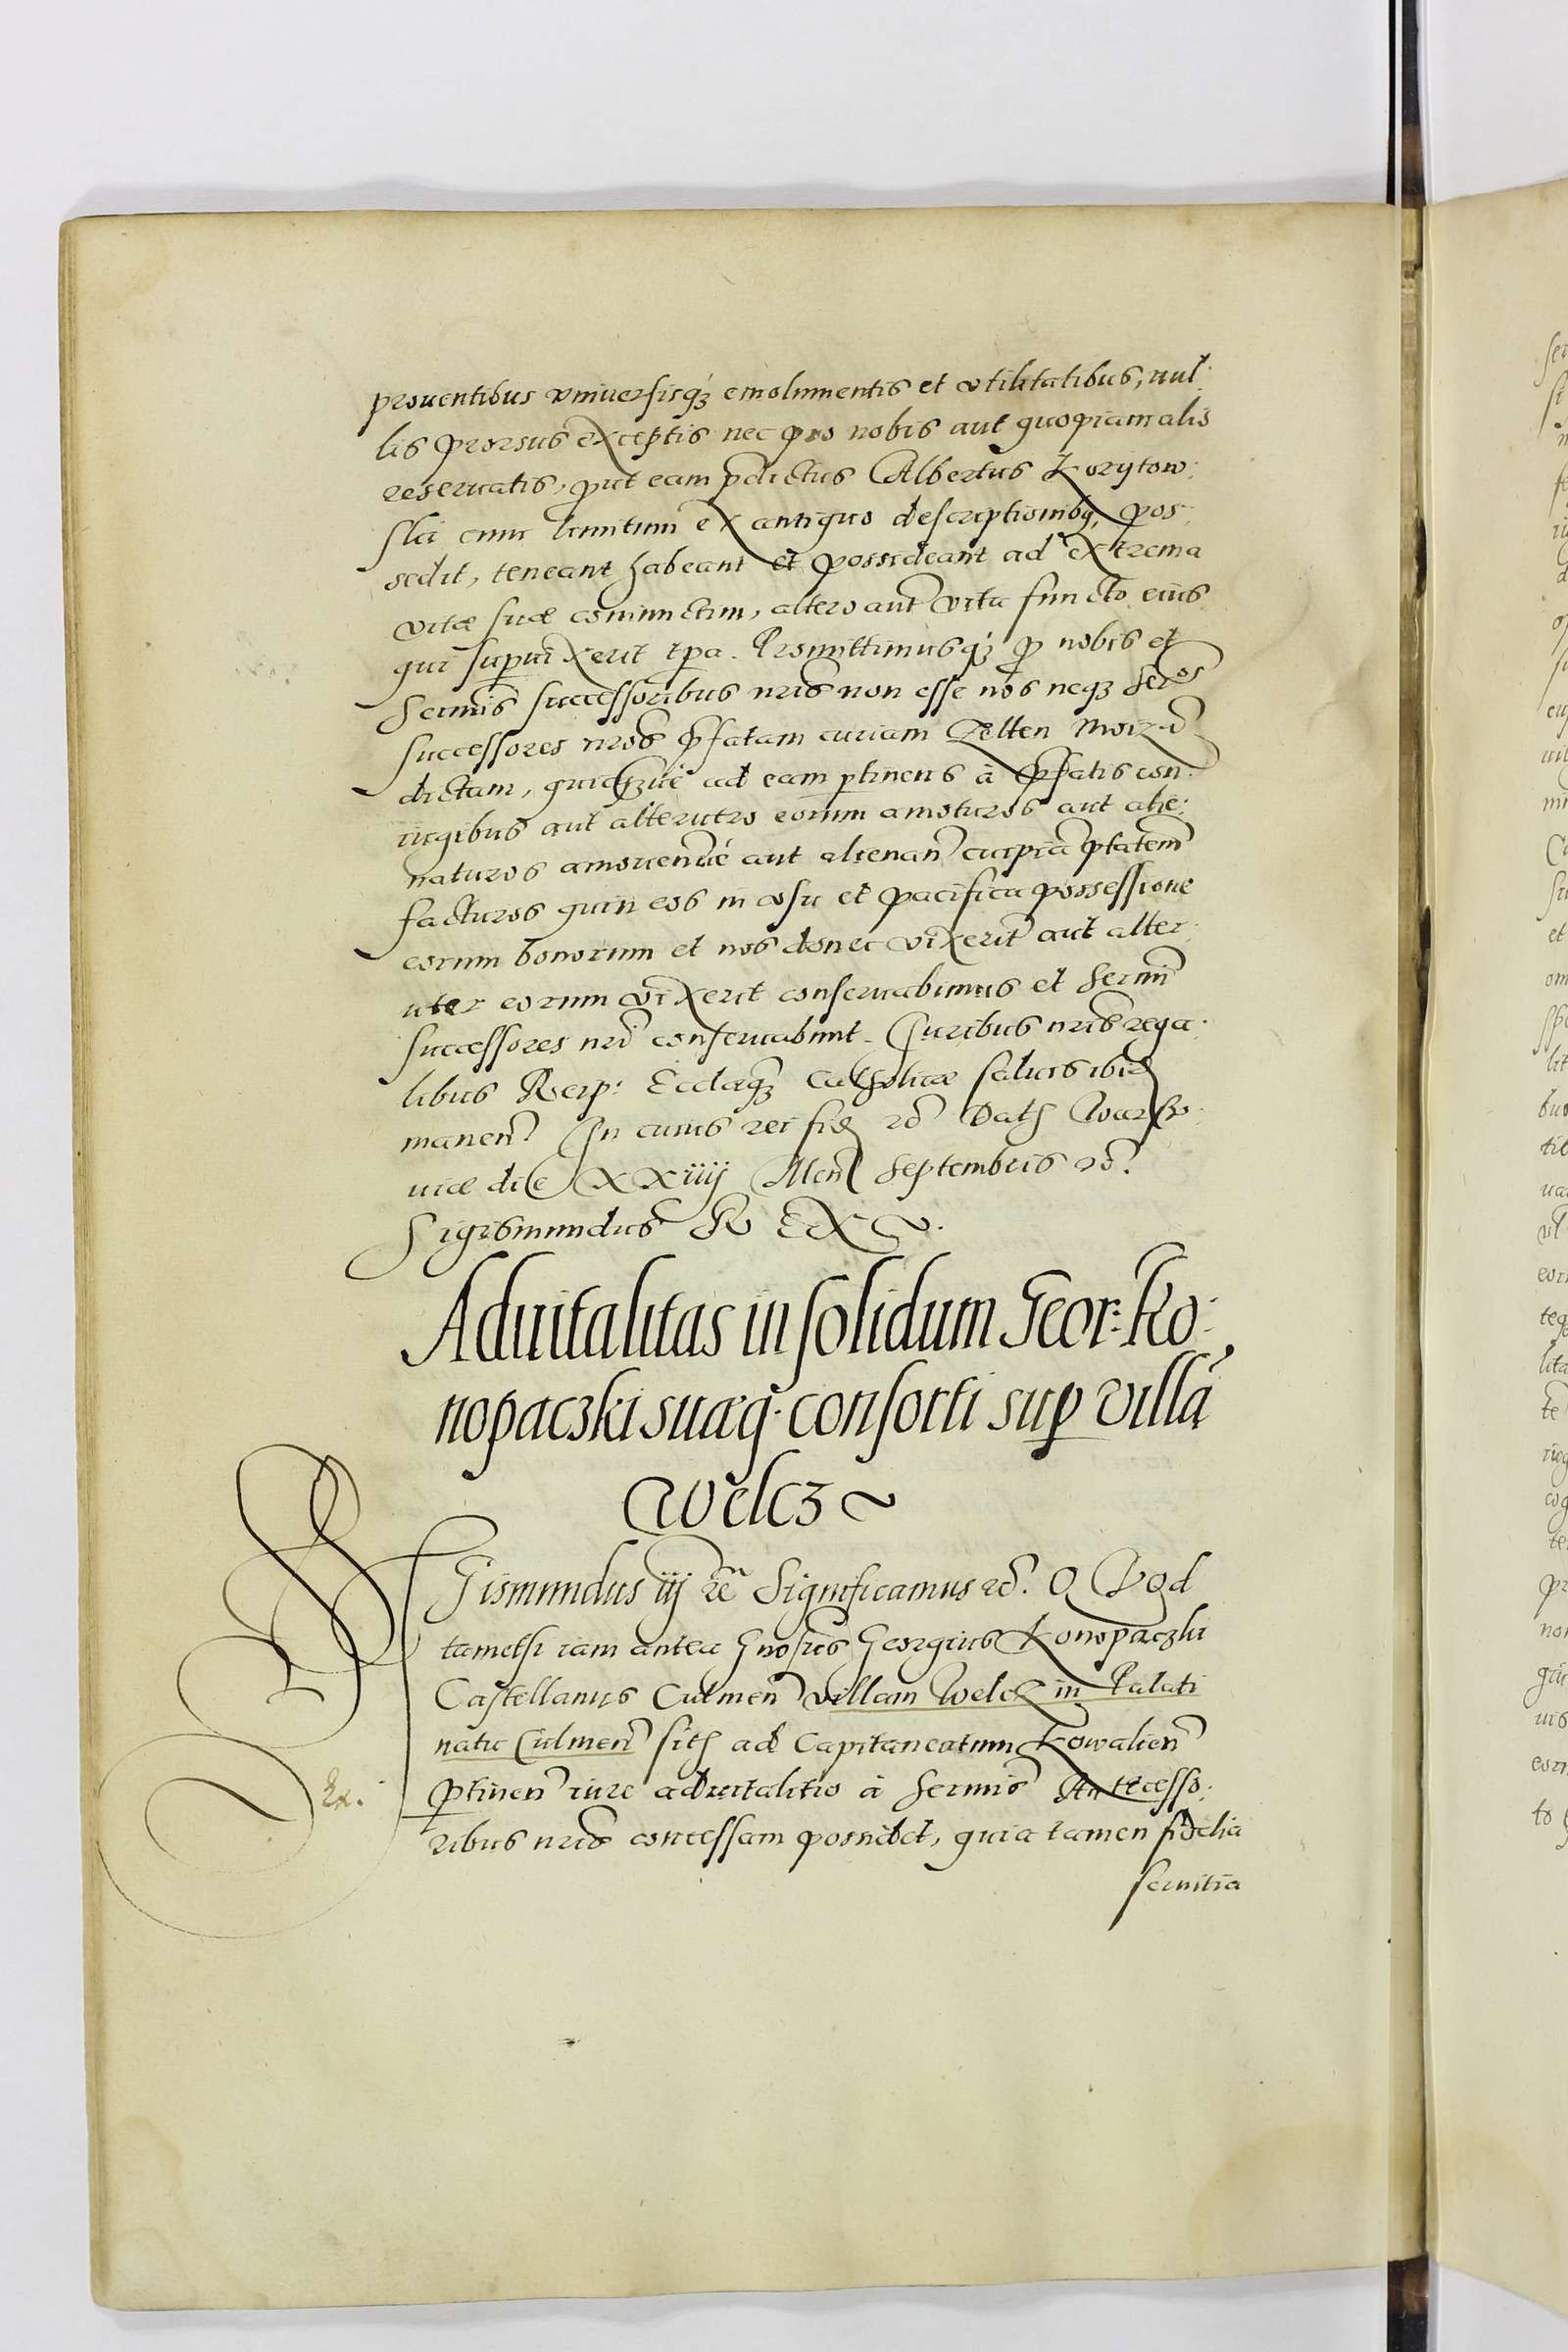 prouentibus vniuersisq́ꝫ emolumentis et vtilitatibus, nul:
lis prorsus exceptis nec pro nobis aut quopiam alio
reseruatis, ꝓut eam p̃dictus Albertus Korytow:
ski cum limitum ex antiquo descriptionibꝫ, pos:
sedit, teneant habeant et possideant ad extrema
vitæ suæ coniunctim, altero aut̃ vita functo eius
qui supuixerit tp̃a. Promittimusq́ꝫ ꝓ nobis et
Sermis̃ successoribus nris̃ non esse nos neqꝫ Ser̃os
successores nros̃ p̃fatam curiam Zelten Moiz
dictam, quidqueue ad eam ptinens à p̃fatis con:
iugibus aut alterutro eorum amoturos aut alie:
naturos amouen̄ué aut alienan̄ cuipiã ptatem̃
facturos quin eos in vsu et pacifica possessione
eorum bonorum et nos donec vixerit̃ aut alter:
uter eorum vixerit conseruabimus et Sermi̅
successores nri̅ conseruabunt. Iuribus nris̃ rega:
libus Reip: Ecclæqꝫ Catholicæ saluis ibid
manen̄. In cuius rei fid̃ &c̃ Dat̃ Warsso:
uiæ die XXiiij Men̄ Septembris &c̃.
Sigismundus R EX
Aduitalitas in solidum Geor: Ko:
nopaczki suæq: consorti sup villã
Welcz
SIgismundus iij &c̃ Significamus &c̃. Q Vod
tametsi iam antea Gnosus̃ Georgius Konopaczki
Castellanus Culmen̄ villam Welcz in Palati
natu Culmen̄ sit̃ ad Capitaneatum Kowalien̄
ptinen̄ iure aduitalitio à Sermis̃ Antecesso:
Ex.
ribus nris̃ concessam possidet, quia tamen fidelia
seruitia